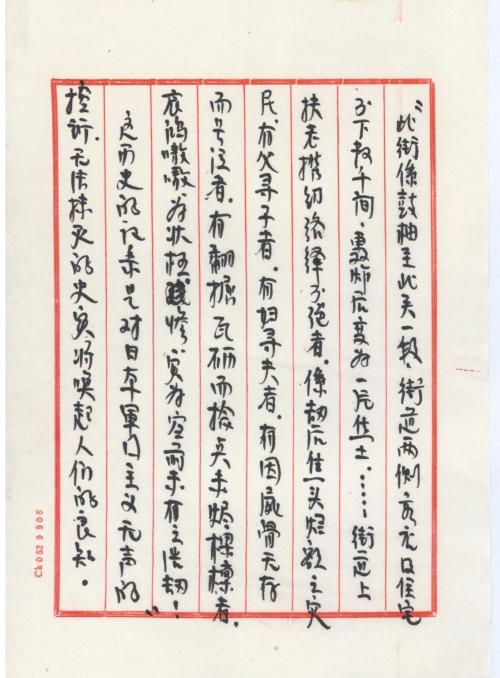 “此街係鼓袖至北关一段，街道两侧　　住宅
不下数千间，轰炸后变为一片焦土。……街道上
扶老携幼络绎不绝者。係劫后焦头烂额之灾
民，有父寻子者。有妇寻夫者。有因屍骨无存
而号泣者。有翻擔瓦砾而捡　未烬樑檩者。
哀鸿嗷嗷，为状极　惨，实为空前未有之浩劫！”
这历史的记录是对日本軍国主义无声的
控诉。无法抹灭的史实将唤起人们的良知。
Ch0529905